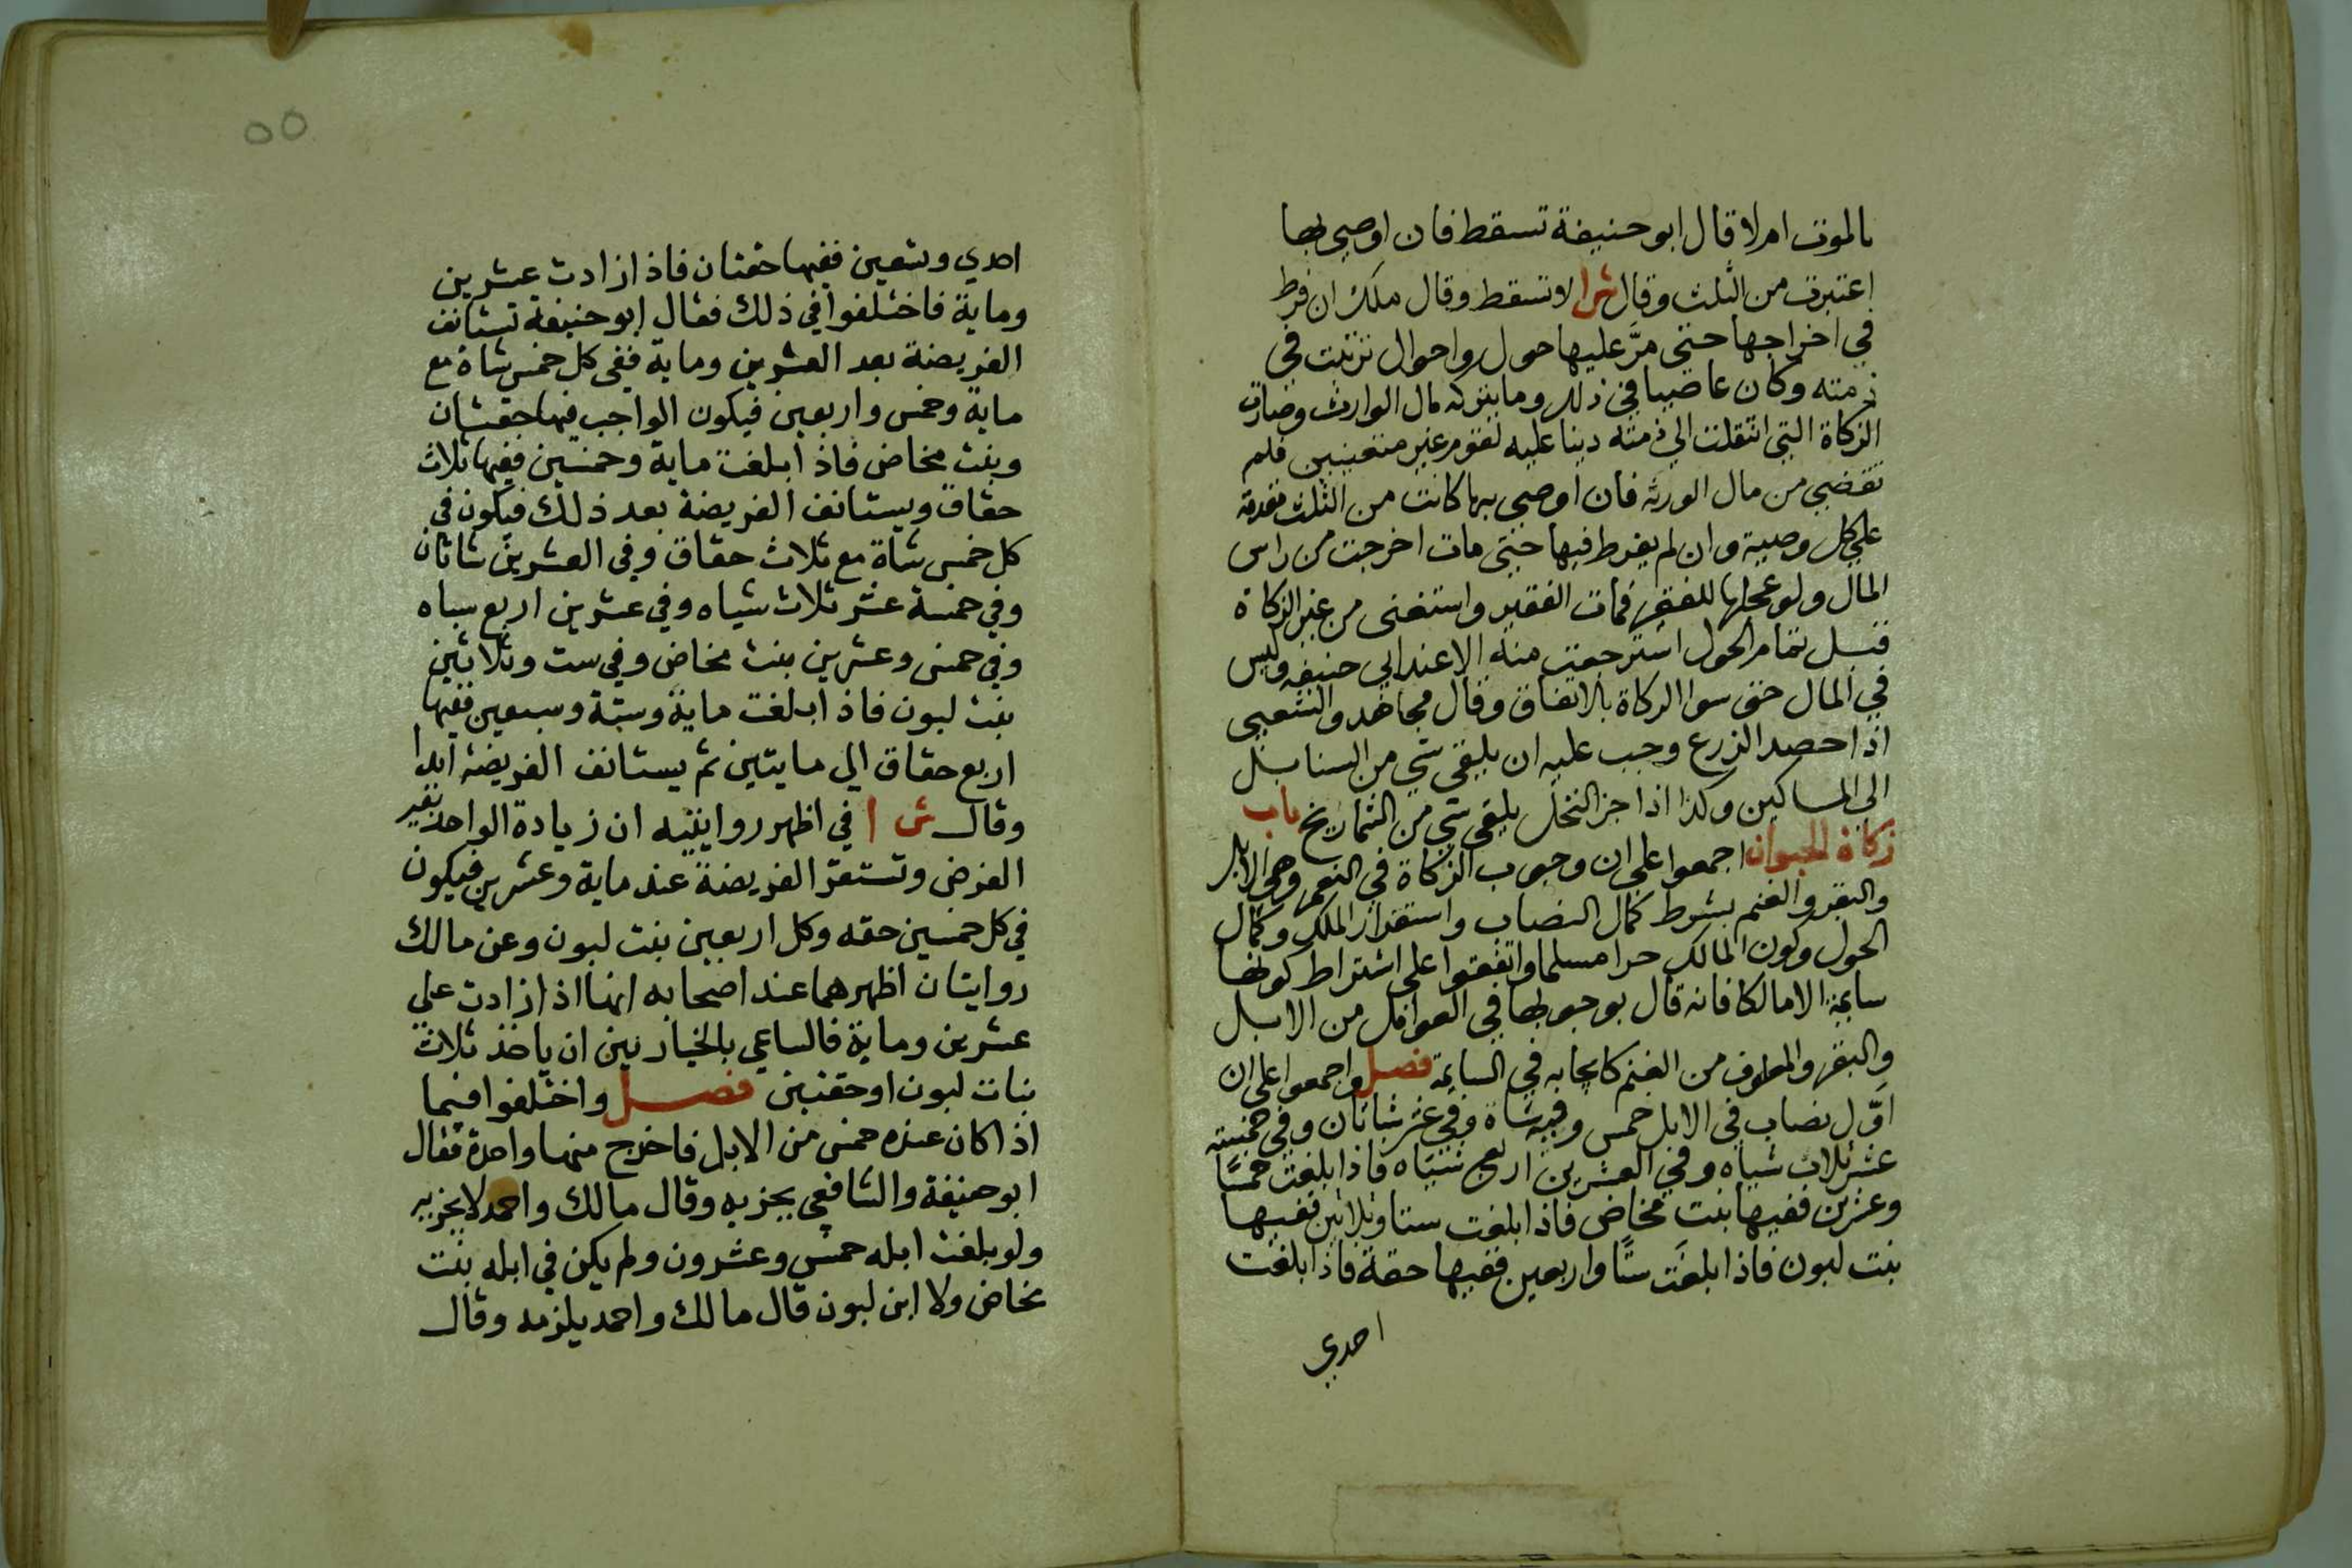 بالموت ام لا قال ابو حنيفة تسقط فان اوصي بها
اعتبرت من الثلث وقال ش ا لا تسقط وقال ملك ان فرط
في اخراجها حتي مرَّ عليها حول واحوال ترتبت في
ذمته وكان عاصيا في ذلك وما يتركه مال الوارث وصارت
الزكاة التي انتقلت الي ذمته دينا عليه لقوم غير متعينين فلم
تقضي من مال الورثه فان اوصي بها كانت من الثلث مقدمة
علي كل وصية وان لم يفرط فيها حتي مات اخرجت من راس
المال ولو عجلها للفقير فمات الفقير واستغنى من غير الزكاة
قبل تمام الحول استرجعت منه الا عند ابي حنيفه وليس
في المال حق سوا الزكاة بالاتفاق وقال مجاهد والشعبي
اذا حصد الزرع وجب عليه ان يلقي شي من السنابل
الي المساكين وكذا اذا جز النخل يلقي شي من الشماريخ باب
زكاة الحيوان اجمعوا علي ان وجوب الزكاة في النعم وهي الابل
والبقر والغنم بشرط كمال النصاب واستقرار الملك وكمال
الحول وكون المالك حرا مسلما واتفقوا علي اشتراط كونها
سايمة الا مالكا فانه قال بوجوبها في العوامل من الابل
والبقر والمعلوف من الغنم كايجابه في السايمة فصل واجمعوا علي ان
اوّل نصاب في الابل خمس وفيه شاة وفي عشر شاتان وفي خمسة
عشر ثلاث شياه وفي العشرين اربع شياه فاذا بلغت خمسًا
وعشرين ففيها بنت مخاض فاذا بلغت ستا وثلاثين ففيها
بنت لبون فاذا بلغَت ستًّا واربعين ففيها حقة فاذا بلغت
احدي
٥٥
احدي وتسعين ففيها حقتان فاذا زادت عشرين
وماية فاختلفوا في ذلك فقال ابو حنيفة تستانف
الفريضة بعد العشرين وماية ففي كل خمس شاة مع
ماية وخمس واربعين فيكون الواجب فيها حقتان
وبنت مخاض فاذا بلغت ماية وخمسين ففيها ثلاث
حقاق ويستانف الفريضة بعد ذلك فيكون في
كل خمس شاة مع ثلاث حقاق وفي العشرين شاتان
وفي خمسة عشر ثلاث شياه وفي عشرين اربع سياه
وفي خمس وعشرين بنت مخاض وفي ست وثلاثين
بنت لبون فاذا بلغت ماية وستة وسبعين ففيها
اربع حقاق الي مايتين ثم يستانف الفريضة ابدا
وقال ش ا في اظهر روايتيه ان زيادة الواحد تغير
الفرض وتستقر الفريضة عند ماية وعشرين فيكون
في كل خمسين حقه وكل اربعين بنت لبون وعن مالك
روايتان اظهرهما عند اصحابه انها اذا زادت علي
عشرين وماية فالساعي بالخيار بين ان ياخذ ثلاث
بنات لبون او حقتين فصل واختلفوا فيما
اذا كان عنده خمس من الابل فاخرج منها واحدة فقال
ابو حنيفة والشافعي يجزيه وقال مالك واحمد لا يجزيه
ولو بلغت ابله خمس وعشرون ولم يكن في ابله بنت
مخاض ولا ابن لبون قال مالك واحمد يلزمه وقال